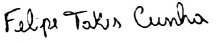 Felipe Takis Cunha